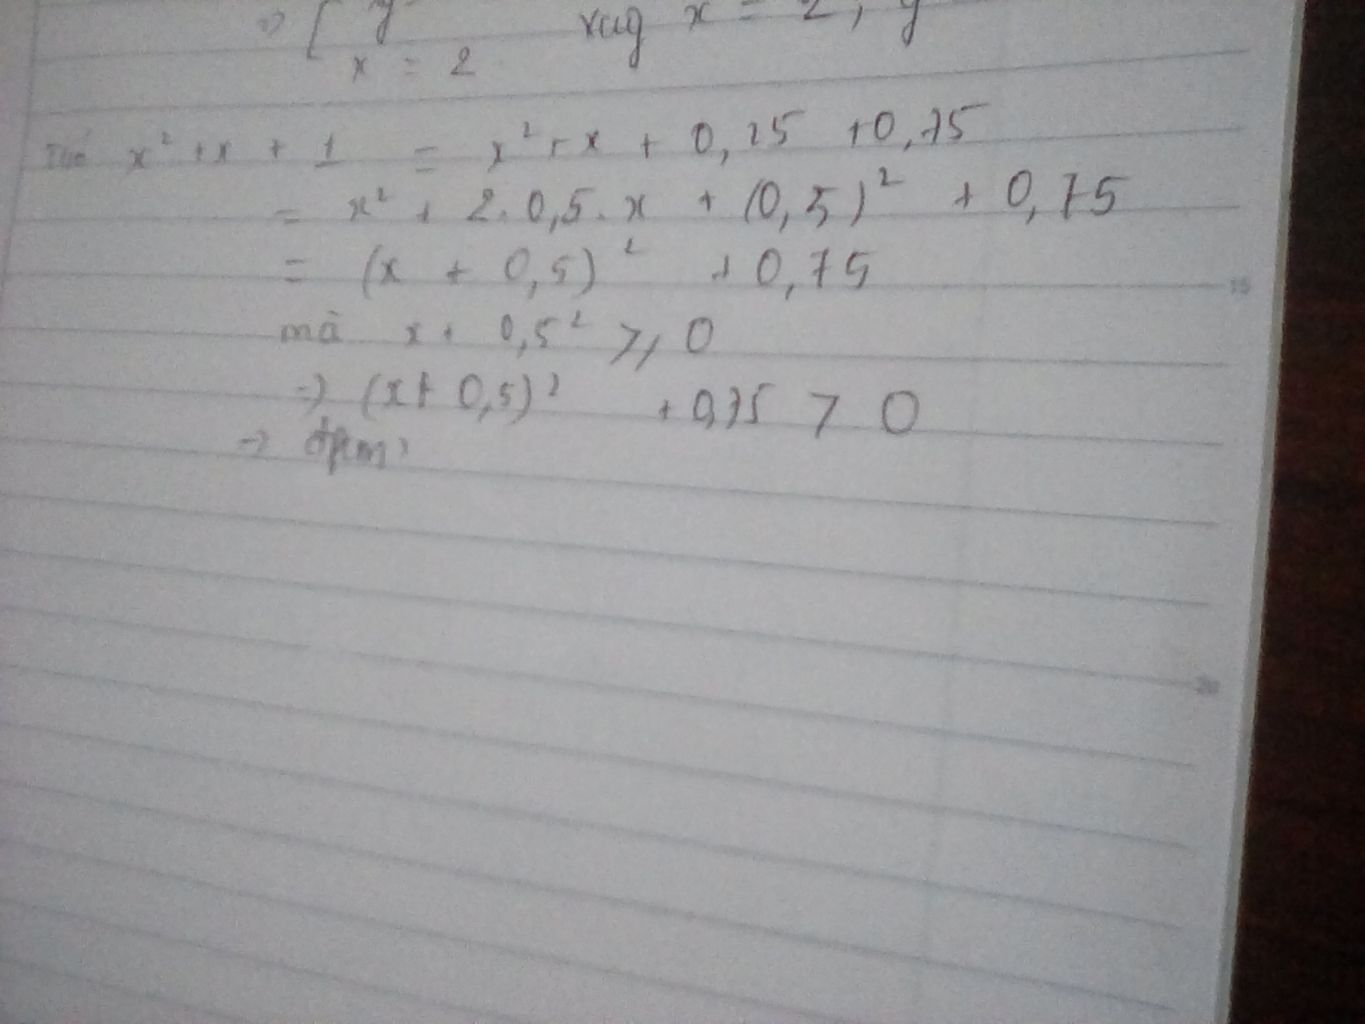 ⇒ [ y
x = 2 vag x = 2, y
x² + x + 1 = x² + x + 0,25 + 0,75
= x² + 2.0,5.x + (0,5)² + 0,75
= (x + 0,5)² + 0,75
mà x + 0,5² ≥ 0
→ (x + 0,5)² + 0,75 > 0
→ đpcm
15
20